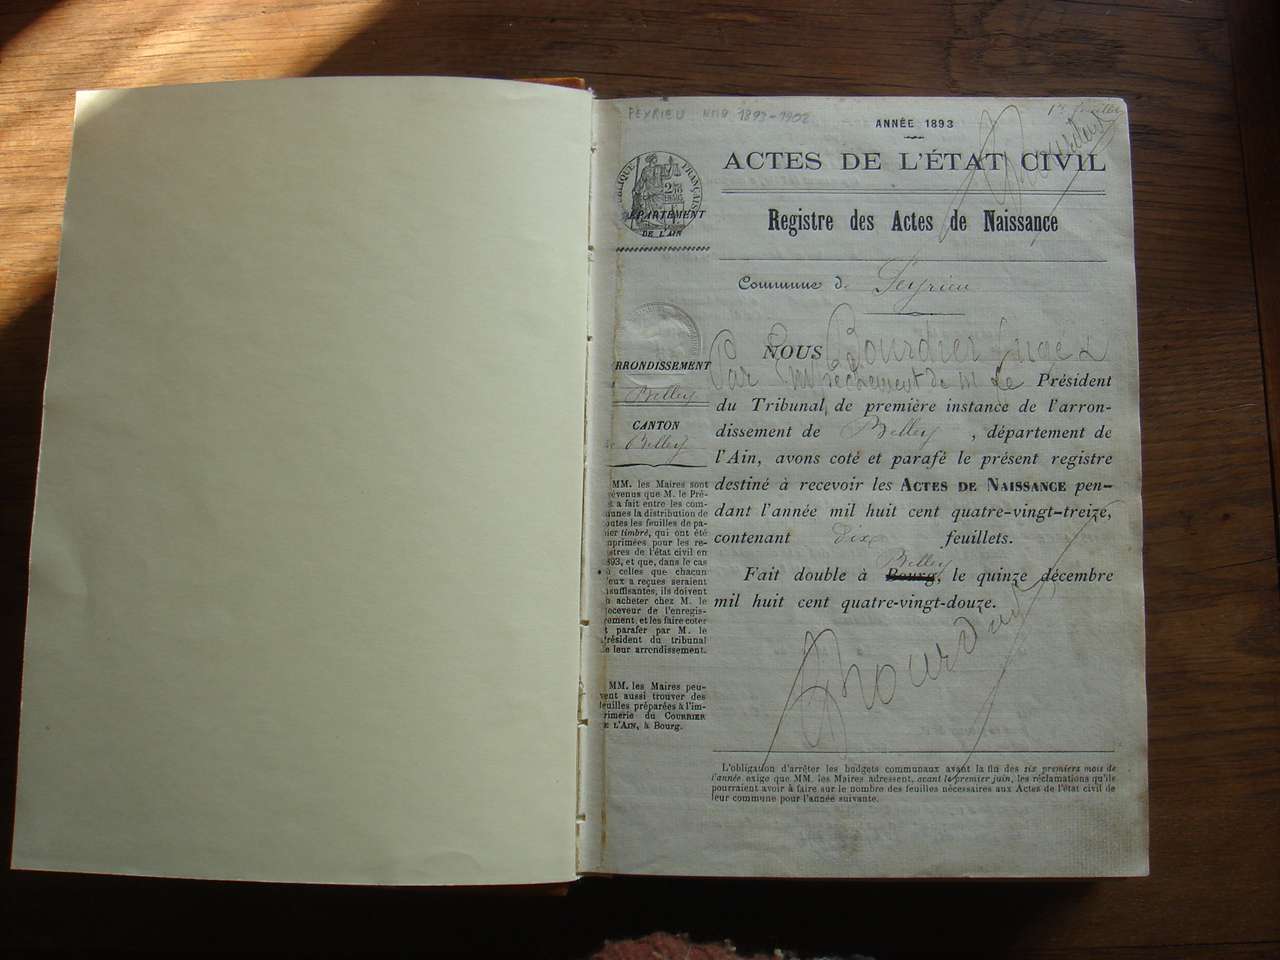 PEYRIEU NMD 1893-1902
1er feuillet
ANNÉE 1893
ACTES DE L'ÉTAT CIVIL
Registre des Actes de Naissance
Commune de Peyrieu
NOUS Bourdier Juge
Par Empêchement de M Le Président
du Tribunal de première instance de l'arron-
dissement de Belley, département de
l'Ain, avons coté et parafé le présent registre
destiné à recevoir les ACTES DE NAISSANCE pen-
dant l'année mil huit cent quatre-vingt-treize,
contenant dix feuillets.
Belley
Fait double à Bourg, le quinze décembre
mil huit cent quatre-vingt-douze.
UBLIQUE FRANÇAISE
DÉPARTEMENT
DE L'AIN
RRONDISSEMENT
Belley
CANTON
de Belley
MM. les Maires sont
révenus que M. le Pré-
t a fait entre les com-
unes la distribution de
outes les feuilles de pa-
ier timbré, qui ont été
mprimées pour les re-
stres de l'état civil en
893, et que, dans le cas
ù celles que chacun
'eux a reçues seraient
nsuffisantes, ils doivent
n acheter chez M. le
eceveur de l'enregis-
rement, et les faire coter
t parafer par M. le
résident du tribunal
e leur arrondissement.
MM. les Maires peu-
vent aussi trouver des
feuilles préparées à l'im-
primerie du COURRIER
E L'AIN, à Bourg.
L'obligation d'arrêter les budgets communaux avant la fin des six premiers mois de
l'année exige que MM. les Maires adressent, avant le premier juin, les réclamations qu'ils
pourraient avoir à faire sur le nombre des feuilles nécessaires aux Actes de l'état civil de
leur commune pour l'année suivante.